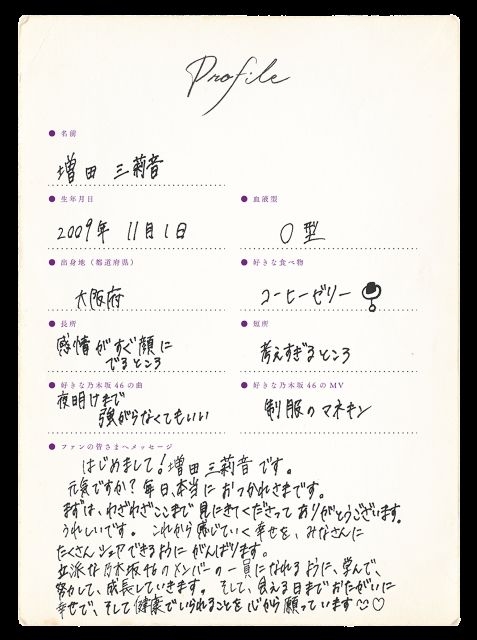 Profile
名前
増田 三莉音
生年月日
2009年 11月1日
血液型
O型
出身地（都道府県）
大阪府
好きな食べ物
コーヒーゼリー
長所
感情がすぐ顔に
でるところ
短所
考えすぎるところ
好きな乃木坂46の曲
夜明けまで
強がらなくてもいい
好きな乃木坂46のMV
制服のマネキン
ファンの皆さまへメッセージ
はじめまして！増田 三莉音です。
元気ですか？毎日、本当におつかれさまです。
まずは、わざわざここまで見にきてくださってありがとうございます。
うれしいです。これから感じていく幸せを、みなさんに
たくさんシェアできるようにがんばります。
立派な乃木坂46のメンバーの一員になれるように、学んで、
努力して、成長していきます。そして、会える日までおたがいに
幸せで、そして健康でいられることを心から願っています♡